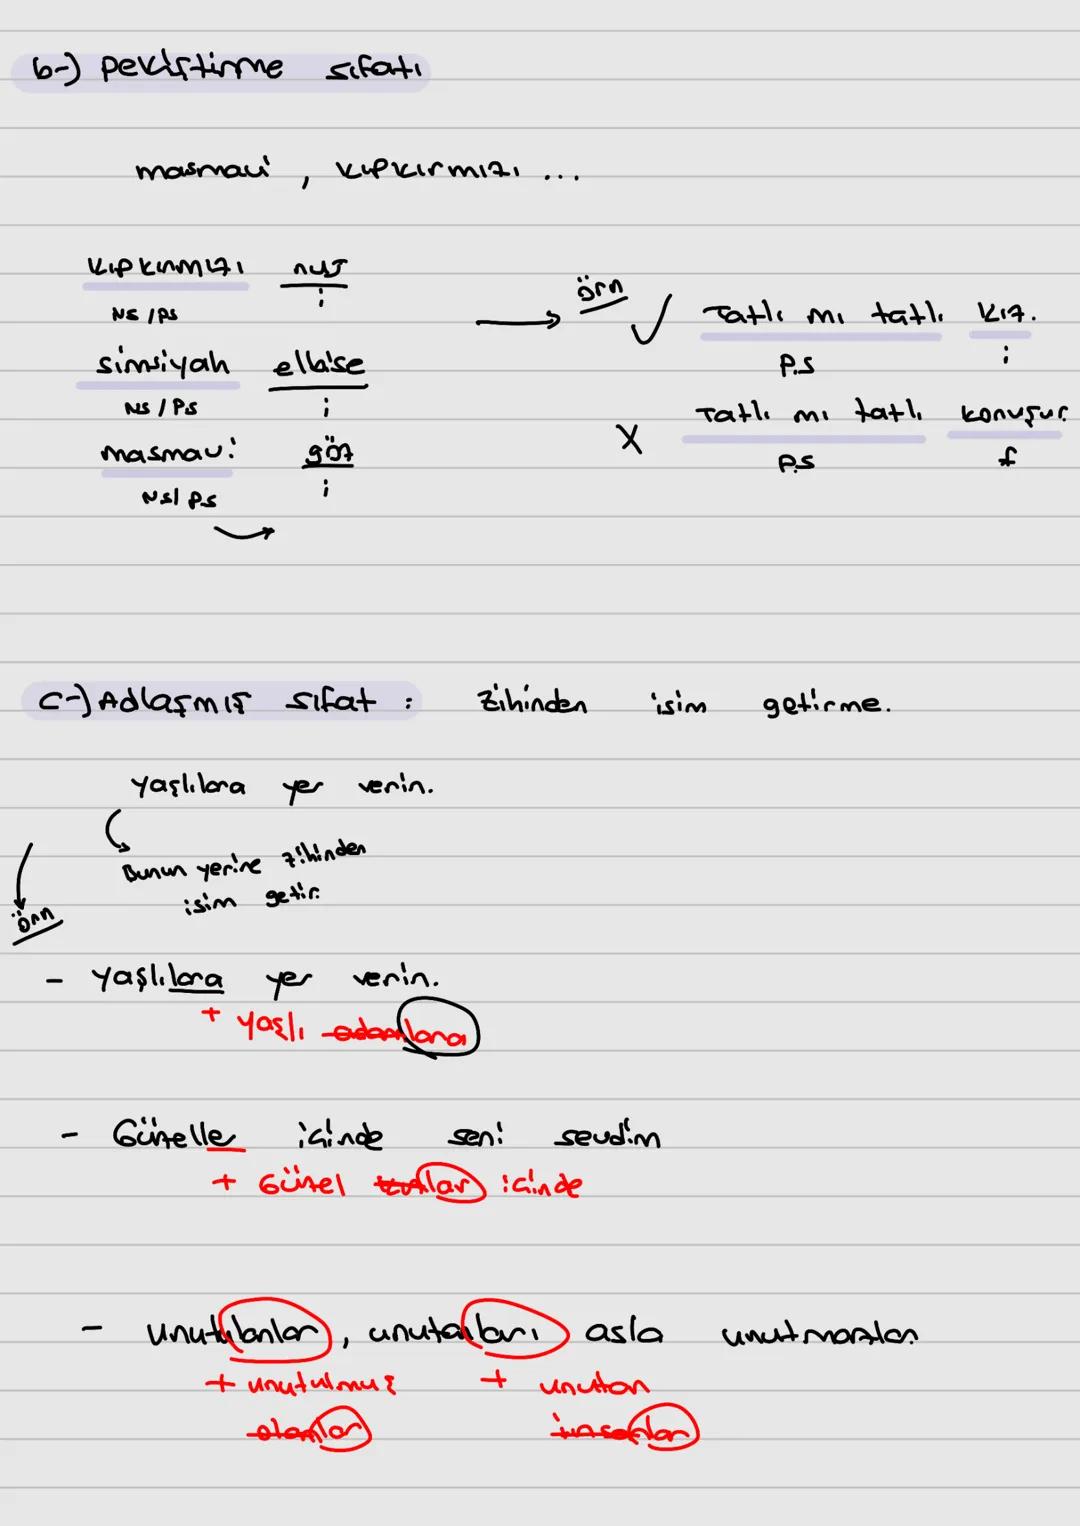 b-) Pekiştirme sıfatı
masmavi, kıpkırmızı ...
kıpkırmızı nur
NS / PS i
simsiyah elbise
NS / PS i
masmavi göz
NS / PS i
örn
✓ Tatlı mı tatlı kız.
P.S i
X Tatlı mı tatlı konuşur.
P.S f
c-) Adlaşmış sıfat : zihinden isim getirme.
Yaşlılara yer verin.
Bunun yerine zihinden
isim getir.
örn
- Yaşlılara yer verin.
+ Yaşlı adamlara
- Güzeller içinde seni sevdim
+ Güzel kızlar içinde
- unutulanlar, unutanları asla unutmazlar.
+ unutulmuş + unutan
olanlar insanlar